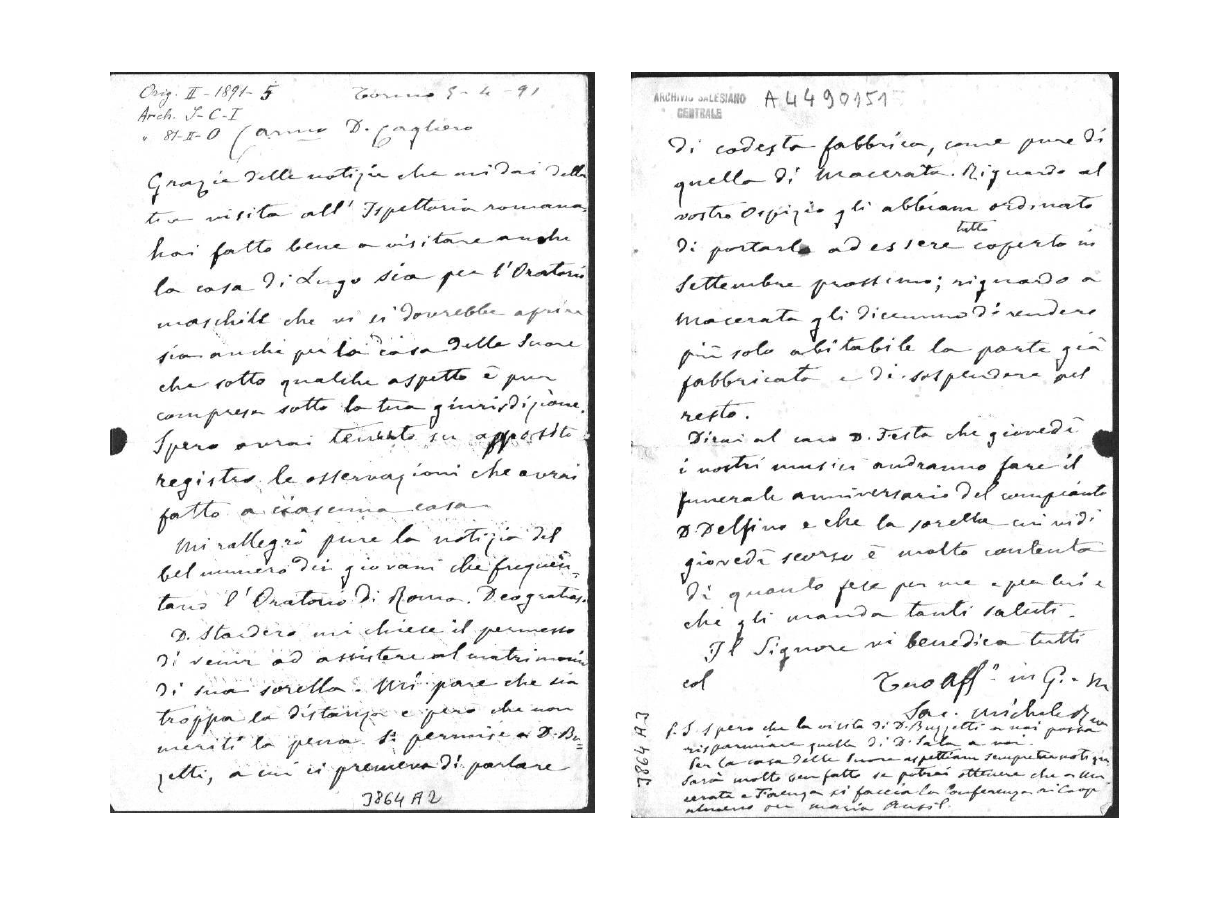 Orig. II - 1891 - 5
Torino 5 - 4 - 91
Arch. S-C-I
" 81-II-0
Carmo D. Cagliero
Grazie delle notizie che mi dai della
tua visita all' Ispettoria romana,
hai fatto bene a visitare anche
la casa di Lugo sia per l'Oratorio
maschile che vi si dovrebbe aprire
sia anche per la casa delle Suore
che sotto qualche aspetto è pur
compresa sotto la tua giurisdizione.
Spero avrai tenuto su apposito
registro le osservazioni che avrai
fatto a ciascuna casa
Mi rallegrò pure la notizia del
bel numero dei giovani che frequen-
tano l'Oratorio di Roma. Deo gratias.
D. Stardero mi chiese il permesso
di venir ad assistere al matrimonio
di sua sorella. Mi pare che sia
troppa la distanza e però che non
meriti la pena. Si permise a D. Bu-
zzetti, a cui ci premeva di parlare
3864 A2
ARCHIVIO SALESIANO
CENTRALE
A4490151
di codesta fabbrica, come pure di
quella di Macerata. Riguardo al
vostro Ospizio gli abbiam ordinato
di portarlo ad essere tutto coperto in
Settembre prossimo; riguardo a
Macerata gli dicemmo di rendere
più solo abitabile la parte già
fabbricata e di sospendere pel
resto.
Dirai al caro D. Festa che giovedì
i nostri musici andranno fare il
funerale anniversario del compianto
D. Delfino e che la sorella cui vidi
giovedì scorso è molto contenta
di quanto fece per me e per lui e
che gli manda tanti saluti.
Il Signore vi benedica tutti
col
Tuo Aff. in G. e M
Sac. Michele Rua
P.S. Spero che la visita di D. Buzzetti a voi possa
risparmiare quella di D. Sala a voi.
Per la casa delle Suore aspettiam sempre tue notizie
Sarà molto ben fatto se potrai ottenere che a Ma
cerata e Faenza si faccia la Conferenza ai Coop
almeno per Maria Ausil.
3864 A3